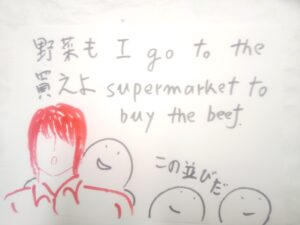 野菜も I go to the
買えよ supermarket to
buy the beef.
この並びだ